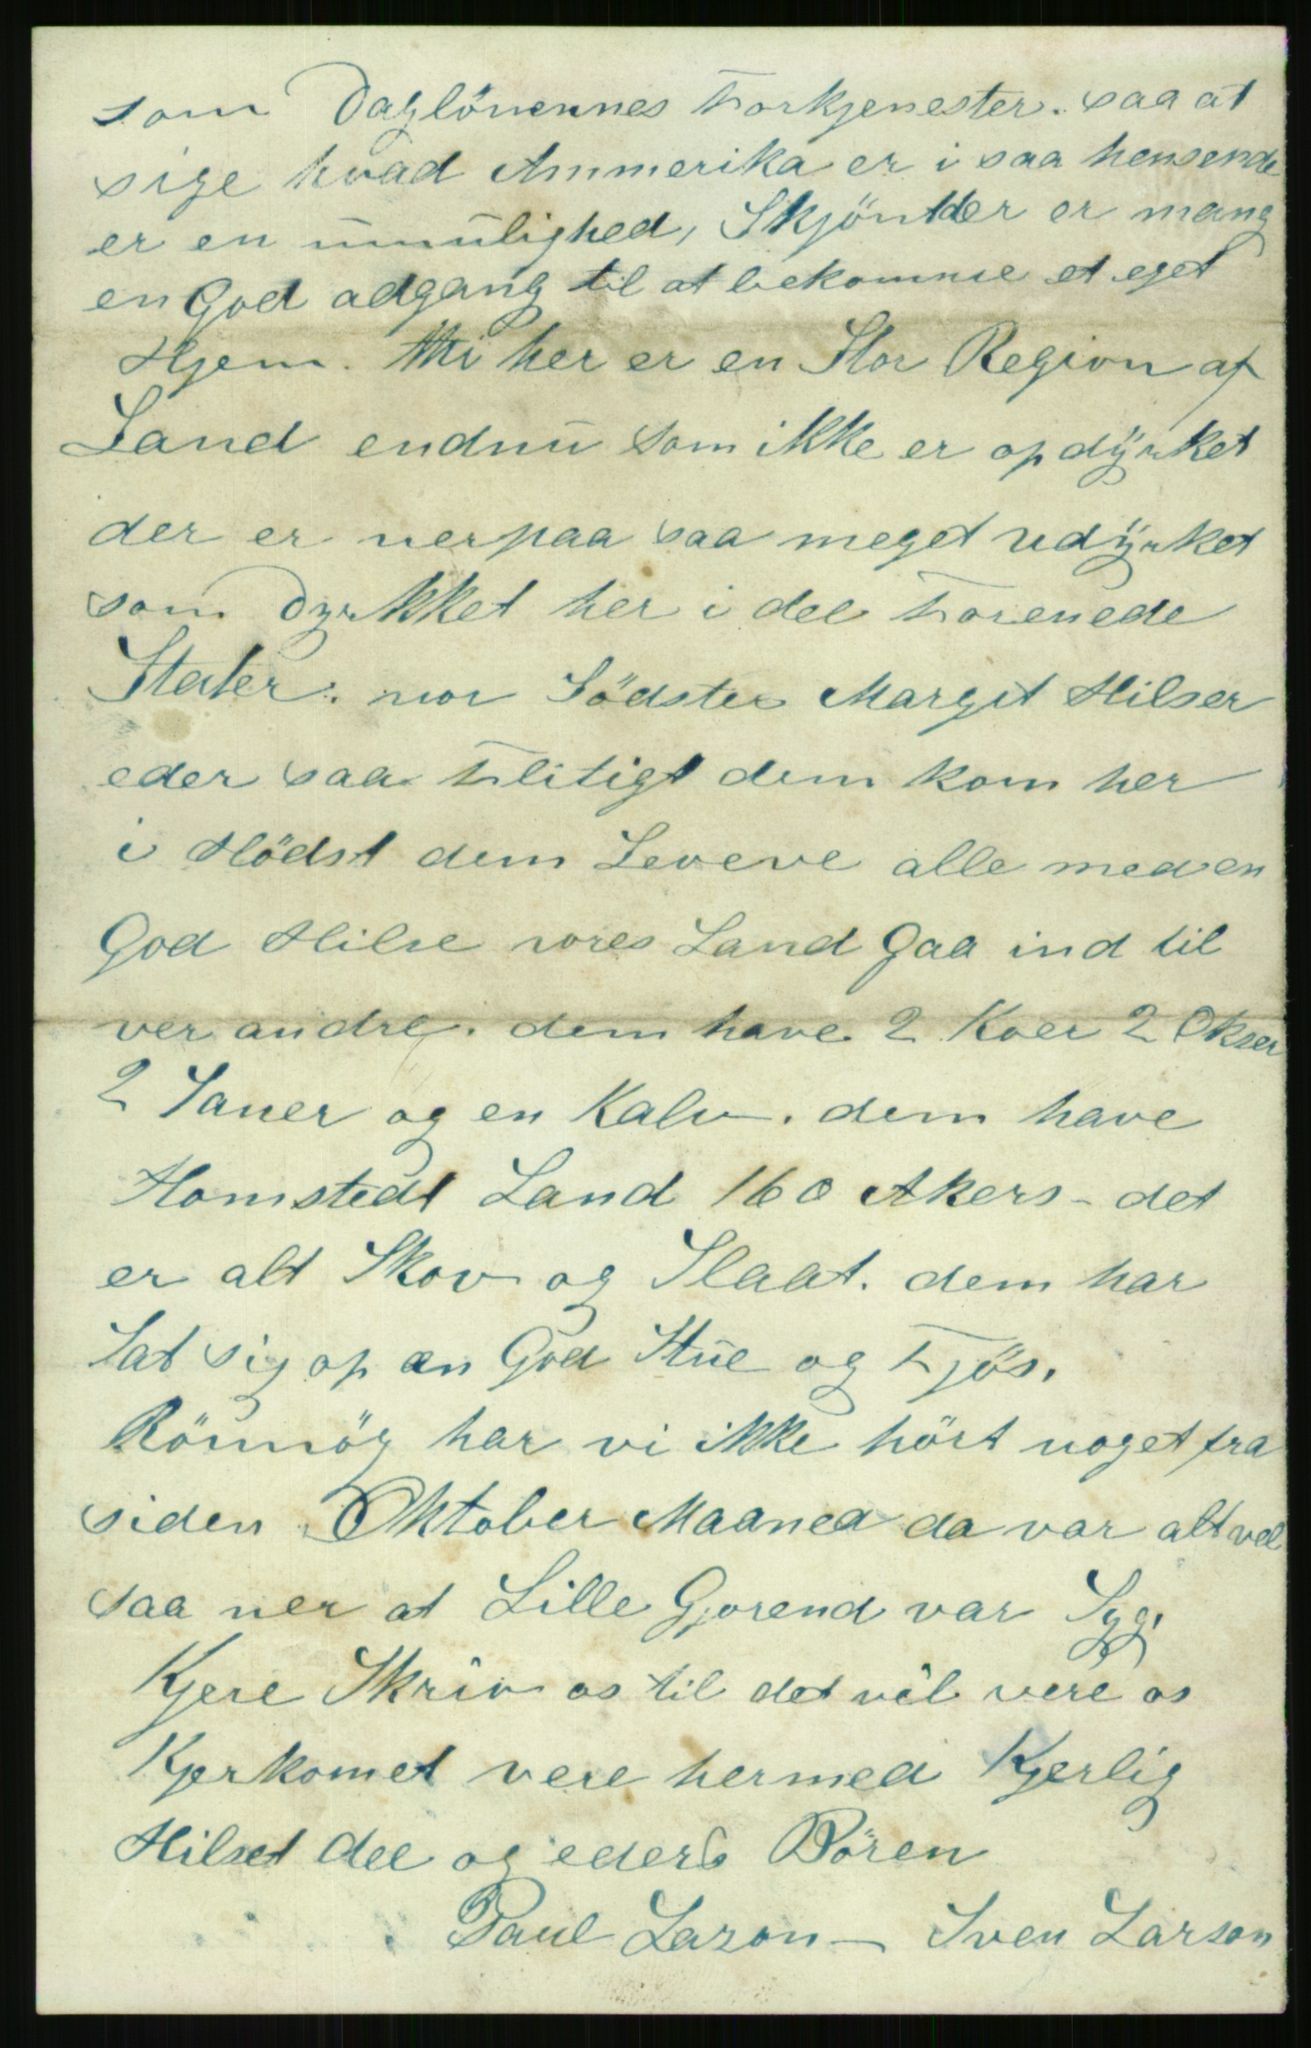 som Daglönennes Forkjenester. saa at
sige hvad Ammerika er i saa hensende
er en umulighed, Skjönt der er mang
en God adgang til at bekomme et eget
Hjem. thi her er en Stor Region af
Land endnu som ikke er opdÿrket
der er nerpaa saa meget udÿrket
som Dyrkket her i dee Forenede
Stater. vor Södster Margit Hilser
eder saa Flitigt dem kom her
i Hödst dem Leveve alle med en
God Hilse vores Land Gaa ind til
ver andre. dem have 2 Koer 2 Okser
2 Sauer og en Kalv. dem have
Homstedt Land 160 Akers - det
er alt Skov og Slaat. dem har
Sat sig op en God Stue og Fjös.
Rönnög har vi ikke hört noget fra
siden Oktober Maaned da var alt vel
saa ner at Lille Gjorend var Syg.
Kjere Skriv os til det vil vere os
Kjerkomet vere hermed Kjerlig
Hilset dee og eders Bören
Paul Larson - Sven Larson